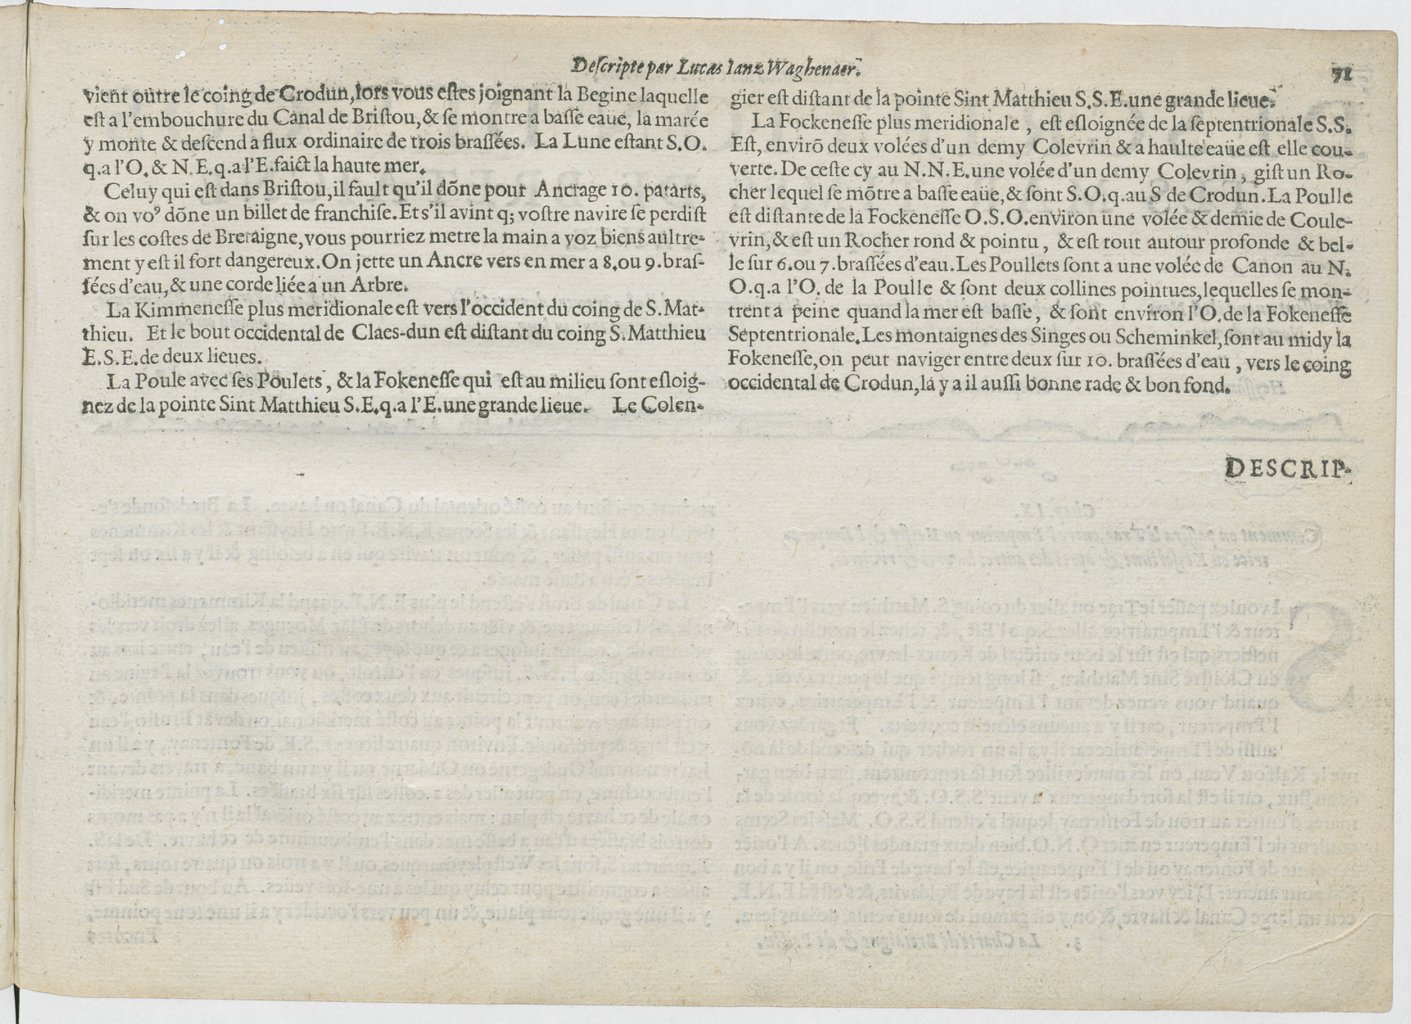 Descripte par Lucas Ianz Waghenaer.
71
vient oûtre le coing de Crodun, lors vous estes joignant la Begine laquelle
est a l'embouchure du Canal de Bristou, & se montre a basse eaüe, la marée
y monte & descend a flux ordinaire de trois brassées. La Lune estant S.O.
q.a l'O. & N.E.q.a l'E. faict la haute mer.
Celuy qui est dans Bristou, il fault qu'il dõne pour Ancrage 10. patarts,
& on voꝰ dõne un billet de franchise. Et s'il avint q; vostre navire se perdist
sur les costes de Bretaigne, vous pourriez metre la main a voz biens aultre-
ment y est il fort dangereux. On jette un Ancre vers en mer a 8. ou 9. bras-
sées d'eau, & une corde liée a un Arbre.
La Kimmenesse plus meridionale est vers l'occident du coing de S. Mat-
thieu. Et le bout occidental de Claes-dun est distant du coing S. Matthieu
E.S.E. de deux lieues.
La Poule avec ses Poulets, & la Fokenesse qui est au milieu sont esloig-
nez de la pointe Sint Matthieu S.E.q.a l'E. une grande lieue. Le Colen-
gier est distant de la pointe Sint Matthieu S.S.E. une grande lieue.
La Fockenesse plus meridionale, est esloignée de la septentrionale S.S.
Est, envirõ deux volées d'un demy Colevrin & a haulte eaüe est elle cou-
verte. De ceste cy au N.N.E. une volée d'un demy Colevrin, gist un Ro-
cher lequel se mõtre a basse eaüe, & sont S.O.q.au S de Crodun. La Poulle
est distante de la Fockenesse O.S.O. environ une volée & demie de Coule-
vrin, & est un Rocher rond & pointu, & est tout autour profonde & bel-
le sur 6. ou 7. brassées d'eau. Les Poullets sont a une volée de Canon au N.
O.q.a l'O. de la Poulle & sont deux collines pointues, lequelles se mon-
trent a peine quand la mer est basse, & sont environ l'O. de la Fokenesse
Septentrionale. Les montaignes des Singes ou Scheminkel, sont au midy la
Fokenesse, on peut naviger entre deux sur 10. brassées d'eau, vers le coing
occidental de Crodun, la y a il aussi bonne rade & bon fond.
DESCRIP-